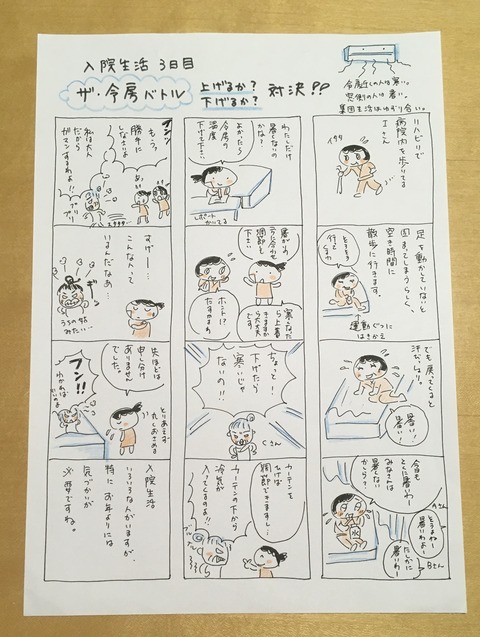 入院生活 3日目
ザ・冷房バトル
上げるか?
下げるか?
対決!?
冷房近くの人は寒い。
窓側の人は暑い。
集団生活はゆずり合い。
リハビリで
病院内を歩いてる
Iさん
イタタ
足を動かしていないと
固まってしまうらしく、
空き時間に
散歩に行きます。
ちょっと
行って
くるわ
運動ぐつに
はきかえ
でも戻ってくると
汗だくだく。
暑い!
暑い!
今日も
とくに暑いわー
みなさんは
暑くない
かしら?
Aさん
そうよねー
暑いわよー
たしかに
暑いわー
Bさん
わたしだけ
暑くないの
かな?
よかったら
冷房の
温度
下げて下さい
レポート
かいてる
暑がりの
方に合わせ
て調節を
下さい
寒くなった
ら上着
きますから
大丈夫
です。
ホント!?
たすかるわぁ
ちょっと!
下げたら
寒いじゃ
ないの!!
Cさん
カーテンを
ひけば
調節できますし…
カーテンの下から
冷気が
入ってくるのよ!!
ブルブル
フンッ
もう、
勝手に
しなさいよ
私は大人
だから
ガマンするわよ!!
プリプリ
すげー…
こんな人って
いるんだなぁ…
うちの姑
みたい…
とりあえず
丸くおさめる
先ほどは
申し訳
ありません
でした。
フン!!
わかれば
いいのよ
入院生活
いろいろな人がいますが、
特にお年よりには
気づかいが
必要ですね。